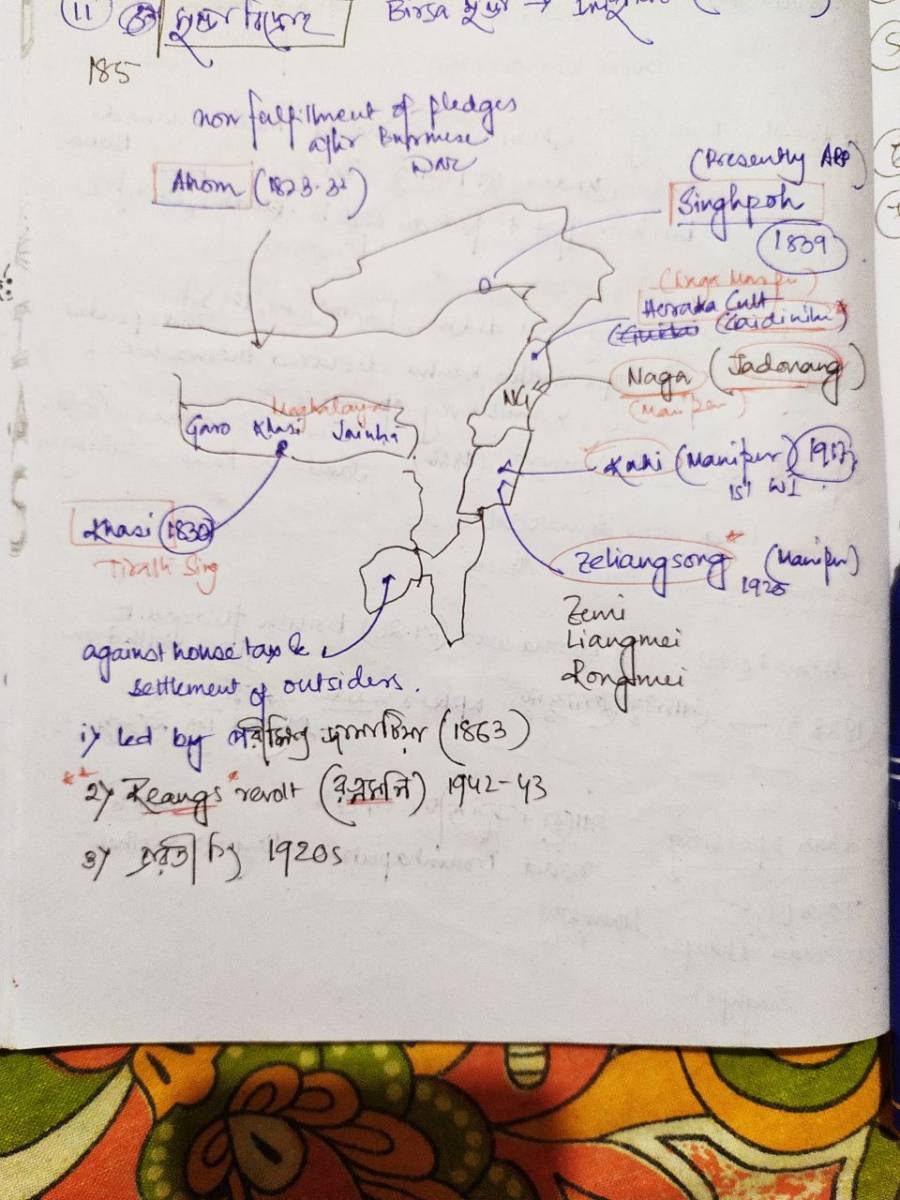 (11) মুন্ডা বিদ্রোহ Birsa মুন্ডা →
185
non fulfillment of pledges
after Burmese
war
Ahom (1823-32)
(Presently ARP)
Singhpoh
1839
(Naga Manipur)
Heraka Cult
(Gaidinliu)
Naga (Jadonang)
(Manipur)
NG
Meghalaya
Garo Khasi Jaintia
Kuki (Manipur) 1917
1st WI
Khasi 1830
Tirath Sing
Zeliangsong (Manipur)
1925
Zemi
Liangmei
Rongmei
against house tax &
settlement of outsiders.
i) Led by পরীক্ষিত জামাতিয়া (1863)
2) Reangs revolt (রত্নমনি) 1942-43
3) 1920s